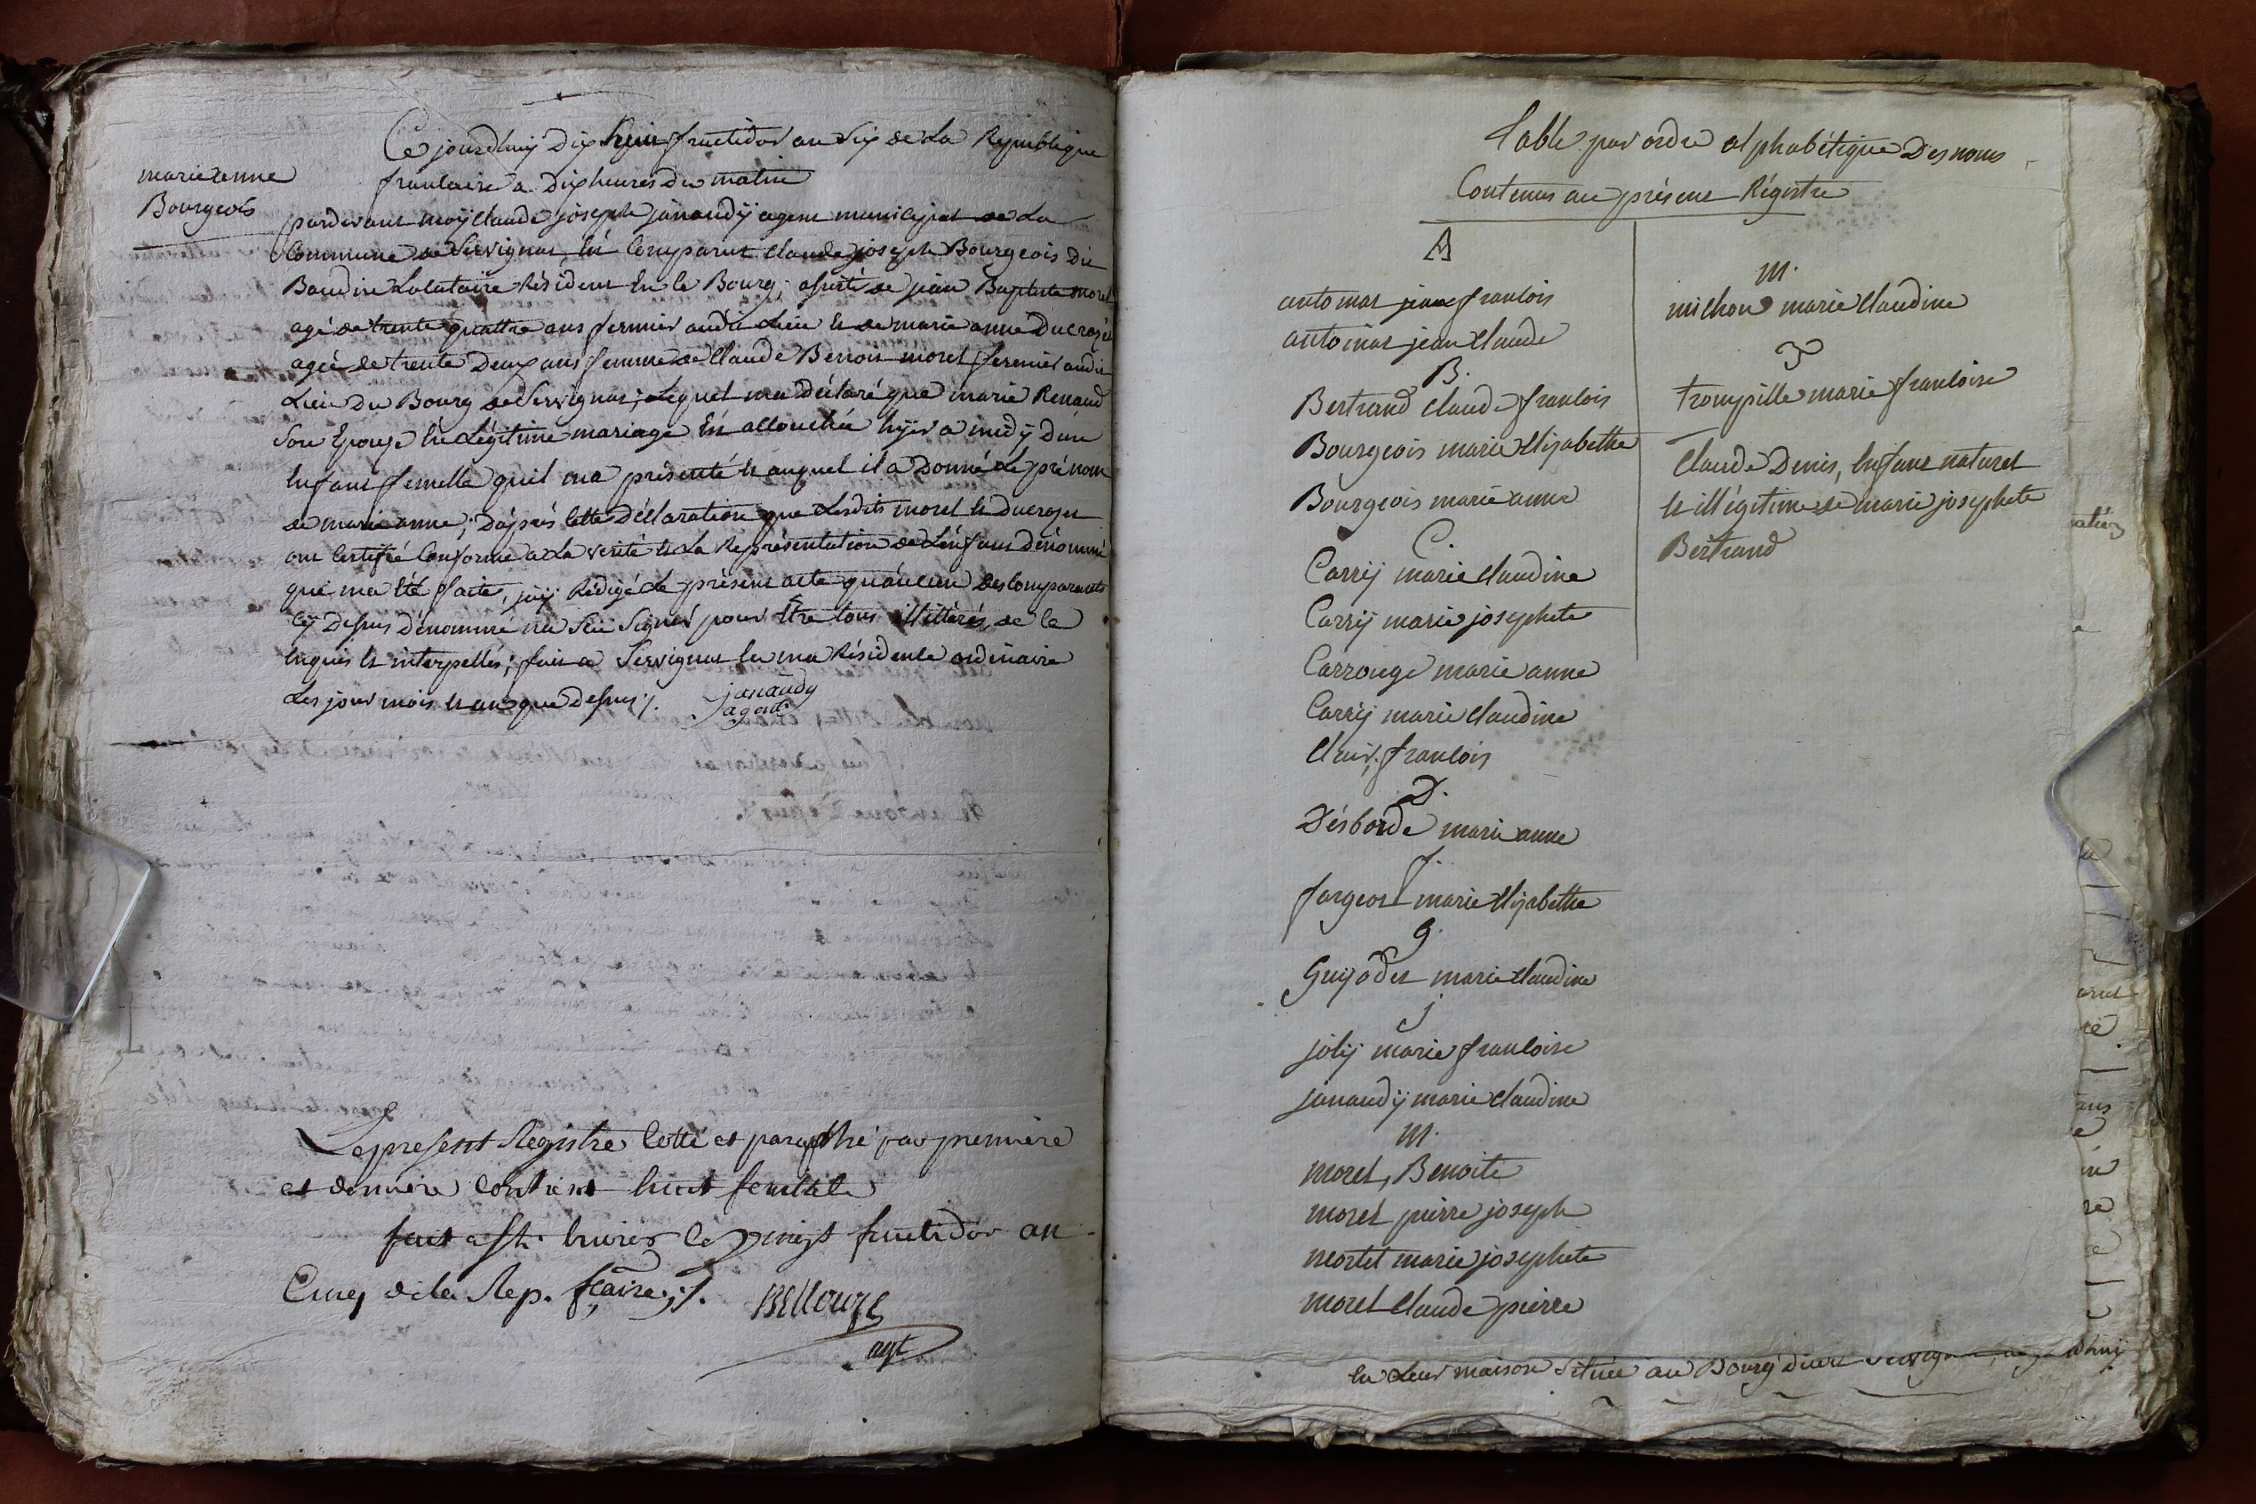 marieanne
Bourgeois
Ce jourd'huij Dix huit fructidor an Six de La Republique
francaise a Dix heures du matin
pardevant moij Claude joseph janaudij agent municipal de La
Commune de Servignat, est Comparut Claude joseph Bourgeois dit
Baudin Résident En le Bourg, assisté de jean Baptiste morel
agé de trente quattre ans fermier audit Lieu et de marie anne Ducroset
agée de trente Deux ans femme de Claude Benoit morel fermier audit
Lieu Du Bourg de Servignat; Lequel ma déclaré que marie Renaud
Son Epouse En Légitime mariage Est accouchée hyer a midÿ d'un
Enfant femelle quil ma présenté et auquel il a Donné Le prénom
de marie anne; D'après Cette Déclaration que Lesdits morel et ducroset
ont Certifié Conforme a La verité et La Représentation de L'enfant dénommé
qui ma Eté faite, jaij Rédigé Le présent acte qu'aucun des Comparants
Cÿ Dessus dénommé na Sçu Signer pour Etre tous illittérés de ce
enquis et interpellés; fait a Servignat En ma Résidence ordinaire
Les jour mois et an que Dessus ./.
janaudy
agent
Le present Registre Cotté et paraphé par premiere
et derniere contient huit feuillets
fait a St. trivier le vingt fructidor an
Cinq de la Rep. fçaise ./.
agt
Table par ordre alphabétique Des noms
Contenus au présent Régistre
A
antoinat jean francois
antoinat jean Claude
B.
Bertrand Claude francois
Bourgeois marie Elizabethe
Bourgeois marie anne
C.
Carrij marie Claudine
Carrij marie josephete
Carronge marie anne
Carrij marie Claudine
Clair, francois
D.
Désborde marie anne
f.
fargeot marie Elizabethe
g.
Guÿodet marie Claudine
j
jolij marie francoise
janaudij marie Claudine
m.
morel, Benoite
morel pierre joseph
mortel marie josephete
morel Claude pierre
m.
michon marie Claudine
T
trompille marie francoise
Claude Denis, Enfant naturel
et illégitime de marie josephete
Bertrand
En Leur maison Située au Bourg dudit Servignat